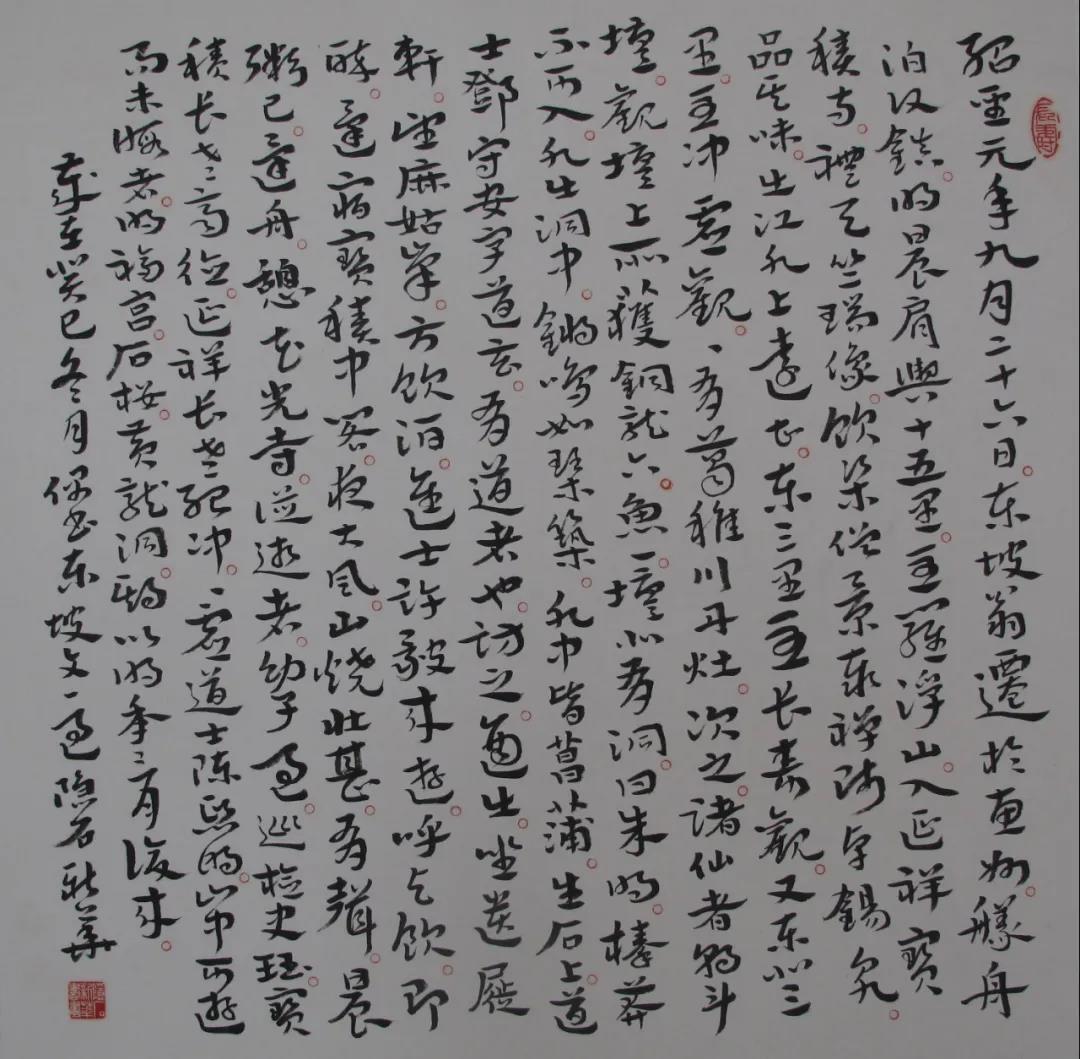 紹聖元年九月二十六日。东坡翁遷於惠州。艤舟
泊頭鎮。明晨肩輿十五里。至羅浮山。入延祥寶
積寺。禮天竺瑞像。飲梁僧景泰禅師卓錫泉。
品其味。出江水上遠甚。东三里至长壽觀。又东北三
里。至冲虛觀。、有葛稚川丹灶。次之諸仙者朝斗
壇。觀壇上所獲銅龍六。魚一。壇北有洞曰朱明。榛莽
不可入。水出洞中。鏘鳴如琴築。水中皆菖蒲。生石上。道
士鄧守安字道玄。有道者也。訪之。適出。坐遺屣
軒。望麻姑峯。方飲酒。進士許毅来遊。呼与飲。即
醉。還宿寶積中閣。夜大風。山燒壮甚。有聲。晨
粥已。還舟。憩花光寺。從遊者。幼子過。巡檢史珏。寶
積长老齐德。延祥长老紹冲。、虛道士陳熙明。山中可遊
而未暇者。明福宫。石桜。黄龍洞。期以明年三月復来。
歲在癸巳冬月偶书东坡文一過 隐石新華
長壽